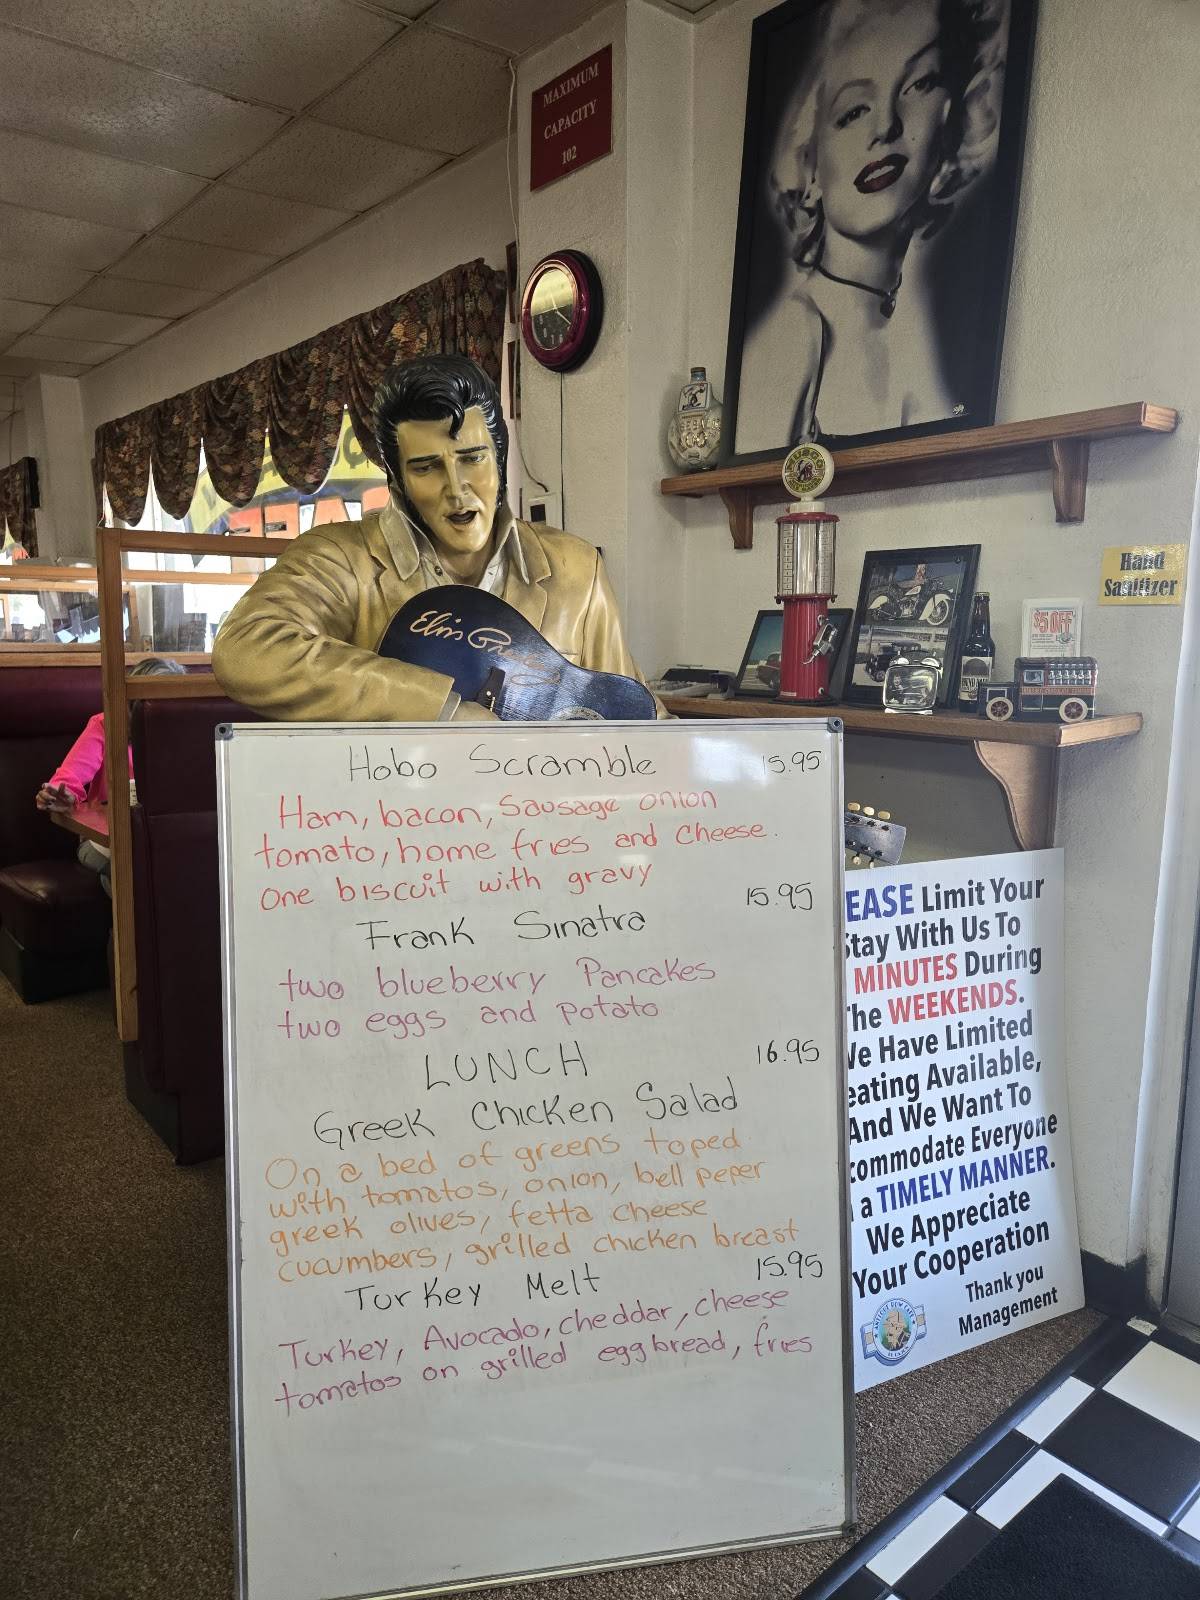 MAXIMUM
CAPACITY
102
Elvis Presley
Hand
Sanitizer
$5 OFF
Hobo Scramble 15.95
Ham, bacon, Sausage onion
tomato, home fries and cheese.
one biscuit with gravy
Frank Sinatra 15.95
two blueberry Pancakes
two eggs and potato
LUNCH 16.95
Greek Chicken Salad
On a bed of greens toped
with tomatos, onion, bell peper
greek olives, fetta cheese
cucumbers, grilled chicken breast
Turkey Melt 15.95
Turkey, Avocado, cheddar, cheese
tomatos on grilled eggbread, fries
EASE Limit Your
Stay With Us To
MINUTES During
The WEEKENDS.
We Have Limited
eating Available,
And We Want To
commodate Everyone
a TIMELY MANNER.
We Appreciate
Your Cooperation
Thank you
Management
ANTIQUE ROW CAFE